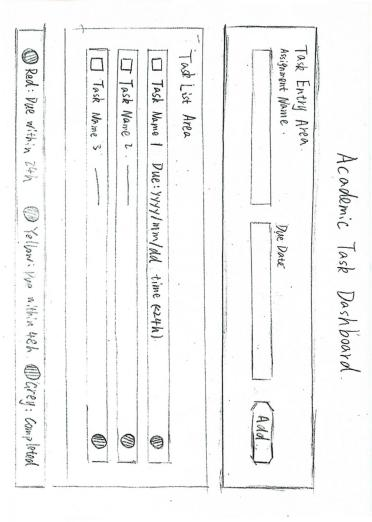 Academic Task Dashboard.
Task Entry Area.
Assignment Name.
Due Date
Add
Task List Area
Task Name 1 Due: yyyy/mm/dd time (<24h)
Task Name 2.
Task Name 3
Red: Due within 24h Yellow: Due within 48h Grey: Completed